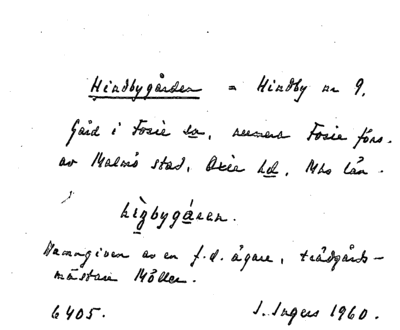 Hindbygården = Hindby nr 9.
Gård i Fosie sn, numera Fosie förs.
av Malmö stad, Oxie hd, Mhs län.
hìgbygáren.
Namngiven av en f.d. ägare, trädgårds-
mästare Möller.
6405. I. Ingers 1960.